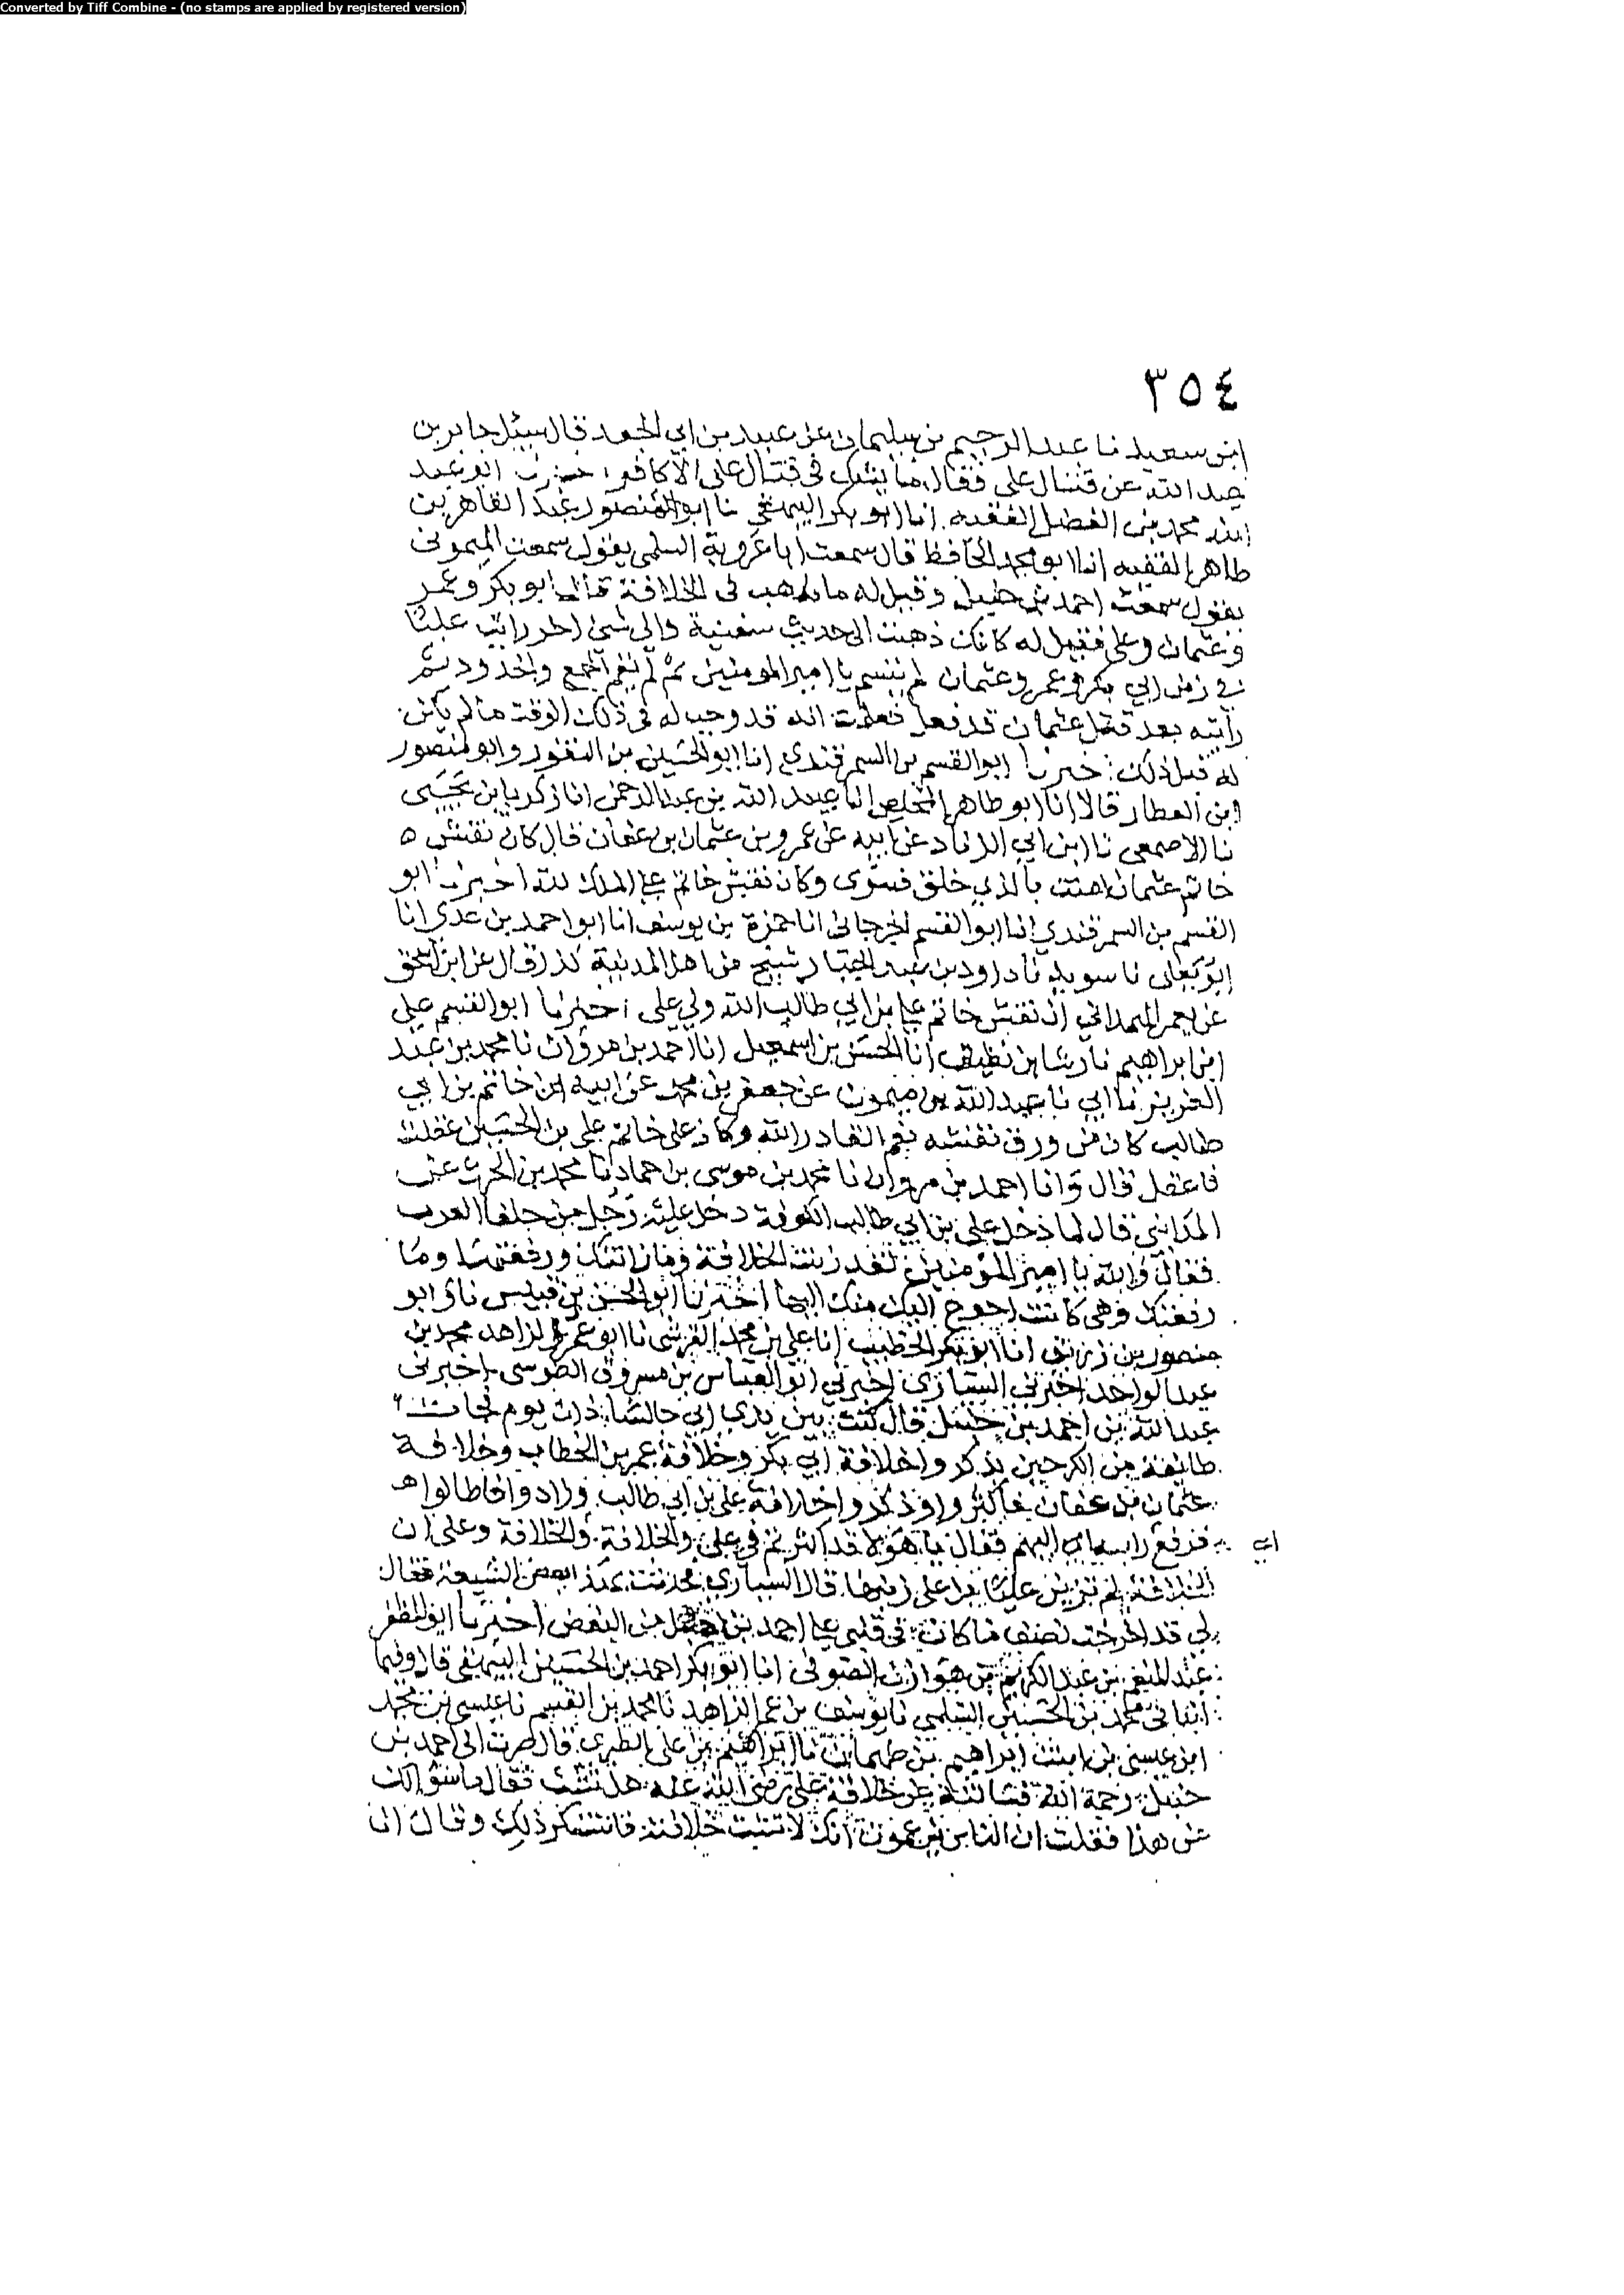 Converted by Tiff Combine - (no stamps are applied by registered version)
٣٥٤
ابن سعيد نا عبد الرحيم بن سليمان عن عبيد بن ابي الجعد قال سئل جابر بن
عبد الله عن قتال علي فقال ما يشك في قتال علي الا كافر اخبرنا ابو عبد
الله محمد بن الفضل الفقيه انا ابو بكر البيهقي نا ابو المنصور عبد القاهر بن
طاهر الفقيه انا ابو محمد الحافظ قال سمعت ابا عروبة السلمي يقول سمعت الميموني
يقول سمعت احمد بن حنبل وقيل له ما تذهب في الخلافة قال ابو بكر وعمر
وعثمان وعلي فقيل له كانك ذهبت الى حديث سفينة والى شيء اخر رايت عليا
في زمن ابي بكر وعمر وعثمان لم يتسم يا امير المومنين ثم لم يقم الجمع والحدود ثم
رايته بعد قتل عثمان قد فعل فعلمت انه قد وجب له في ذلك الوقت ما لم يكن
له قبل ذلك اخبرنا ابو القسم بن السمرقندي انا ابو الحسين بن النقور وابو منصور
ابن العطار قالا انا ابو طاهر المخلص انا عبيد الله بن عبد الرحمن انا زكريا بن يحيى
نا الاصمعي نا ابن ابي الزناد عن ابيه عن عمرو بن عثمان بن عفان قال كان نقش ٥
خاتم عثمان امنت بالذي خلق فسوى وكان نقش خاتم علي الملك لله اخبرنا ابو
القسم بن السمرقندي انا ابو القسم الجرجاني انا حمزة بن يوسف انا ابو احمد بن عدي انا
ابو يعلى نا سويد نا داود بن عبد الجبار شيخ من اهل المدينة كذا قال عن ابي اسحق
عن يعمر الهمداني ان نقش خاتم علي بن ابي طالب الله ولي علي اخبرنا ابو القسم علي
ابن ابراهيم نا رشا بن نظيف انا الحسن بن اسمعيل انا احمد بن مروان نا محمد بن عبد
العزيز نا ابي نا عبد الله بن ميمون عن جعفر بن محمد عن ابيه ان خاتم بن ابي
طالب كان من ورق نقشه نعم القادر الله وكان على خاتم علي بن الحسين عقلت
فاعقل قال وانا احمد بن مروان نا محمد بن موسى بن حماد نا محمد بن الحرث عن
المدايني قال لما دخل علي بن ابي طالب الكوفة دخل عليه رجل من حلفا العرب
فقال والله يا امير المؤمنين لقد زنت الخلافة وما زانتك ورفعتها وما
رفعتك وهي كانت احوج اليك منك اليها اخبرنا ابو الحسن بن قبيس نا وابو
منصور بن زريق انا ابو بكر الخطيب انا علي بن محمد القرشي نا ابو عمر الزاهد محمد بن
عبد الواحد اخبرني السياري اخبرني ابو العباس بن مسروق الطوسي اخبرني
عبد الله بن احمد بن حنبل قال كنت بين يدي ابي جالسا ذات يوم فجات
طايفة من الكرخين يذكروا خلافة ابي بكر وخلافة عمر بن الخطاب وخلافة
عثمان بن عفان فاكثروا وذكروا خلافة علي بن ابي طالب وزادوا فاطالوا ه
فرفع راسه ابي اليهم فقال يا هؤلا قد اكثرتم في علي والخلافة والخلافة وعلي ان
ابي
الخلافة لم تزين عليا بل علي زينها قال السياري فحدثت بهذا بعض الشيعة فقال
لي قد اخرجت نصف ما كان في قلبي على احمد بن حنبل من البغض اخبرنا ابو المظفر
عبد المنعم بن عبد الكريم بن هوازن الصوفي انا ابو بكر احمد بن الحسين البيهقي قال وفيما
انباني محمد بن الحسين السلمي نا يوسف بن عمر الزاهد نا محمد بن القسم نا عيسى بن محمد
ابن عيسى بن ابنت ابراهيم بن طهمان نا ابراهيم بن علي الطبري قال صرت الى احمد بن
حنبل رحمة الله فسالته عن خلافة علي رضي الله عنه هل تثبت فقال ما سؤالك
عن هذا فقلت ان الناس يزعمون انك لا تثبت خلافته فاستنكر ذلك وقال انا